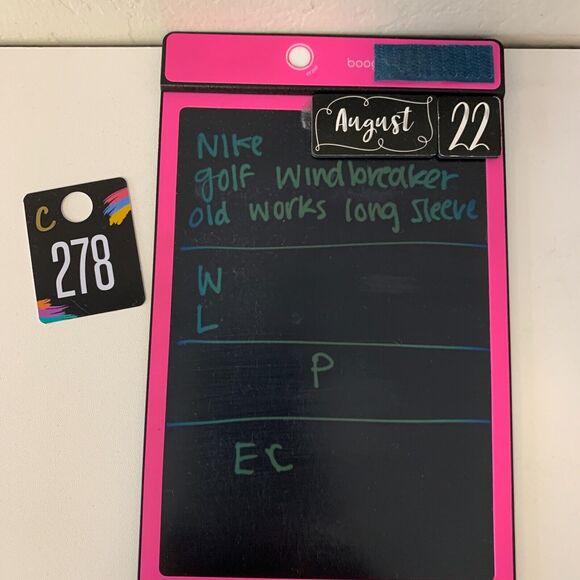 boog
August 22
Nike
golf windbreaker
old works long sleeve
C
278
W
L
P
EC